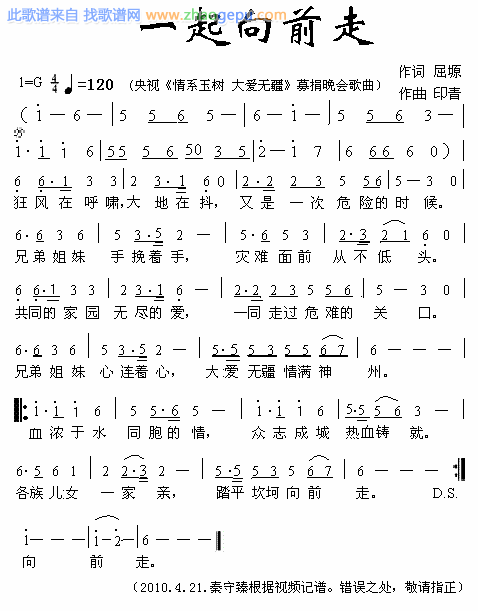 此歌谱来自 找歌谱网 www.zhaogepu.com
一起向前走
1=G 4/4 ♩=120 (央视《情系玉树 大爱无疆》募捐晚会歌曲) 作词 屈塬
作曲 印青
( i - 6 - | 5 5 6 5 - | i - 6 - | 5 5 6 5 6 3 - |
i· i i 6 | 55 5 6 50 3 5 | 2 - i 7 | 6 66 6 0 ) |
6 6·1 3 3 | 2 3·1 6 0 | 2·2 2 3 5 56 | 5 - 3 0 |
狂风在呼啸,大地在抖,又是一次危险的时候。
6·3 3 6 | 5 3·5 2 - | 5·6 5 3 | 2·3 2 1 6 0 |
兄弟姐妹 手挽着手, 灾难面前 从不低头。
6 6·1 3 3 | 2 3·1 6 - | 2·2 2 3 5 5 5 | 5 - 3 0 |
共同的家园 无尽的爱, 一同走过危难的关口。
6·6 3 6 | 5 3·5 2 - | 5·5 5 5 5 5 6 7 | 6 - - - |
兄弟姐妹 心连着心, 大爱无疆 情满神州。
i· i i 6 | 5 5·6 6 - | i· i i 6 | 5·5 5 6 3 - |
血浓于水 同胞的情, 众志成城 热血铸就。
6·5 6 1 | 2 2·3 2 - | 5·5 5·5 3 5 6 7 | 6 - - - :|
各族儿女 一家亲, 踏平坎坷向前走。 D.S.
i - - - | i - 2 - | 6 - - - ||
向前走。
(2010.4.21.秦守臻根据视频记谱。错误之处，敬请指正)